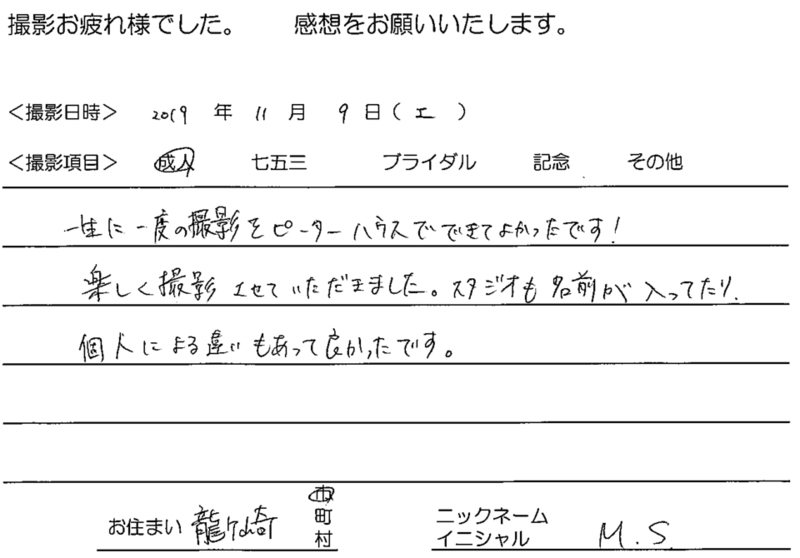 撮影お疲れ様でした。　感想をお願いいたします。
＜撮影日時＞ 2019 年 11 月 9 日（土）
＜撮影項目＞ 成人 七五三 ブライダル 記念 その他
一生に一度の撮影をピーターハウスでできてよかったです！
楽しく撮影させていただきました。スタジオも名前が入ってたり、
個人による違いもあって良かったです。
お住まい 龍ケ崎 市 町 村
ニックネーム イニシャル M.S.